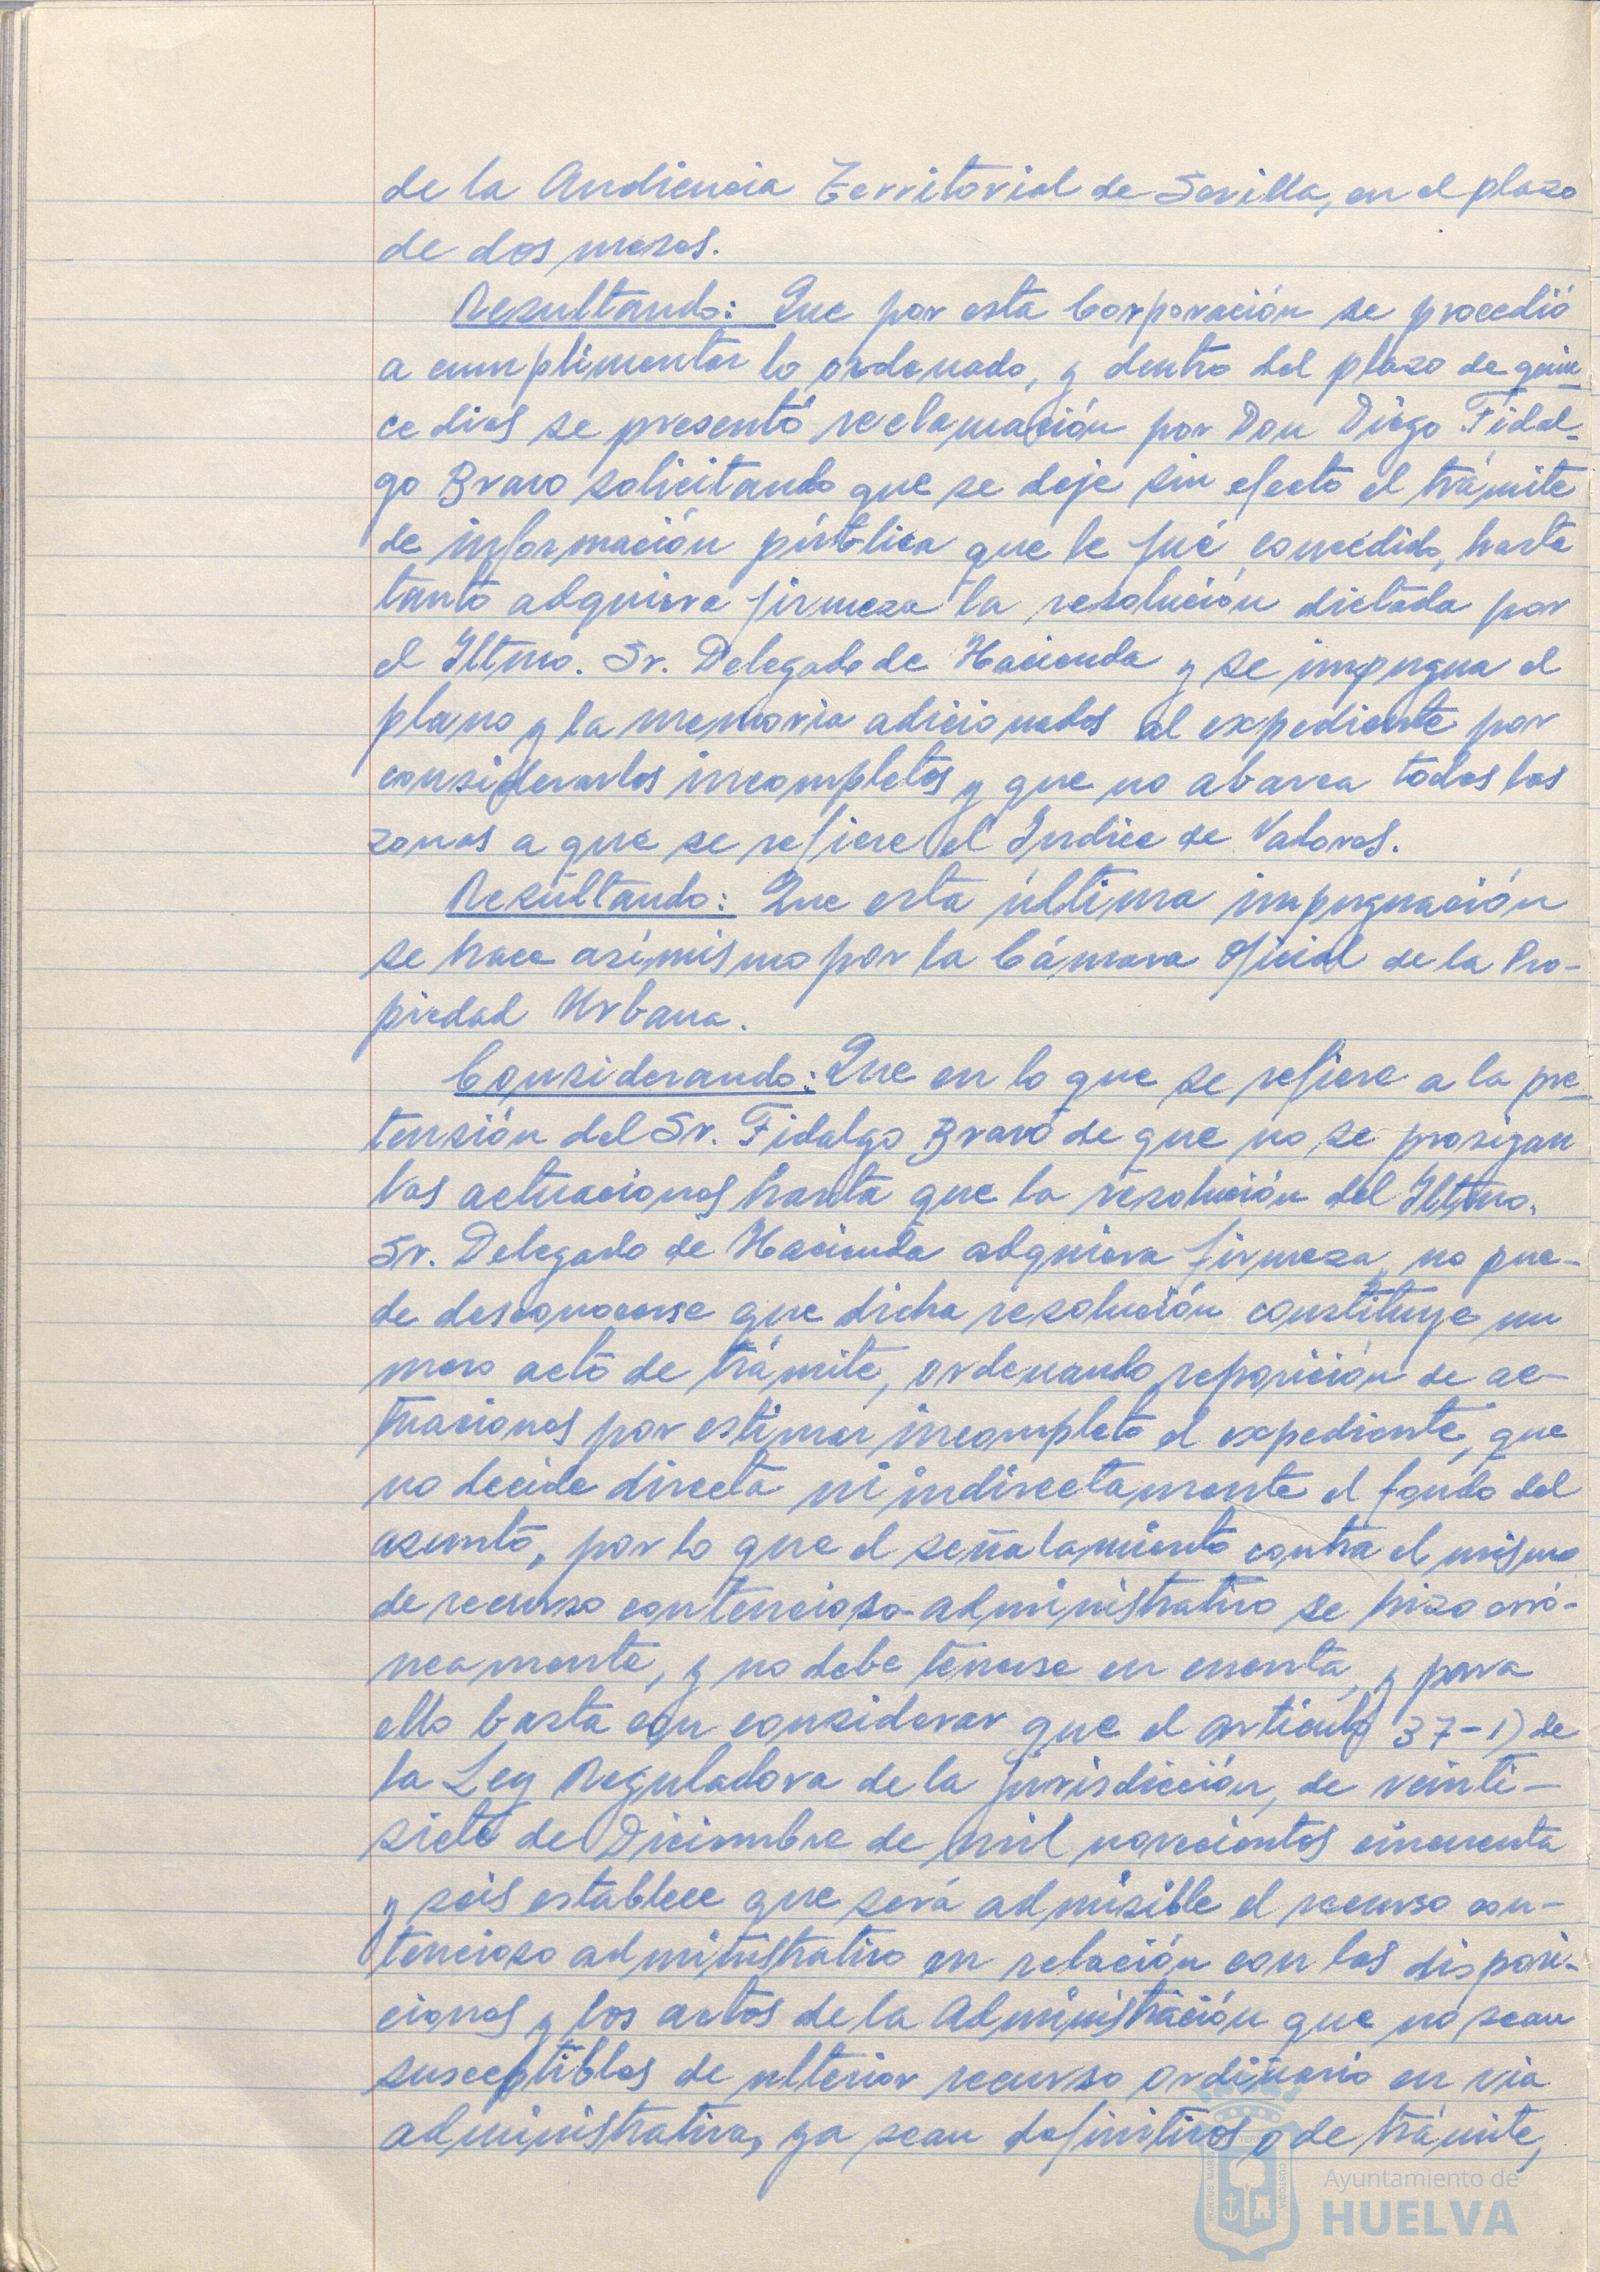 de la Audiencia Territorial de Sevilla, en el plazo
de dos meses.
Resultando: Que por esta Corporación se procedió
a cumplimentar lo ordenado, y dentro del plazo de quin
ce dias se presentó reclamación por Don Diego Fidal-
go Bravo solicitando que se deje sin efecto el trámite
de información pública que le fué concedido, hasta
tanto adquiera firmeza la resolución dictada por
el Iltmo. Sr. Delegado de Hacienda y se impugna el
plano y la memoria adicionados al expediente por
considerarlos incompletos y que no abarca todas las
zonas a que se refiere el Indice de Valores.
Resultando: Que esta última impugnación
se hace asímismo por la Cámara Oficial de la Pro-
piedad Urbana.
Considerando: Que en lo que se refiere a la pre
tensión del Sr. Fidalgo Bravo de que no se prosigan
las actuaciones hasta que la resolución del Iltmo.
Sr. Delegado de Hacienda adquiera firmeza, no pue-
de desconocerse que dicha resolución constituye un
mero acto de trámite, ordenando reposición de ac-
tuaciones por estimar incompleto el expediente, que
no decide directa ni indirectamente el fondo del
asunto, por lo que el señalamiento contra el mismo
de recurso contencioso-administrativo se hizo erró-
neamente, y no debe tenerse en cuenta, y para
ello basta con considerar que el artículo 37-1) de
la Ley Reguladora de la jurisdicción, de veinti-
siete de Diciembre de mil novecientos cincuenta
y seis establece que será admisible el recurso con-
tencioso administrativo en relación con las disposi-
ciones y los actos de la Administración que no sean
susceptibles de ulterior recurso ordinario en via
administrativa, ya sean definitivos o de trámite,
Ayuntamiento de
HUELVA